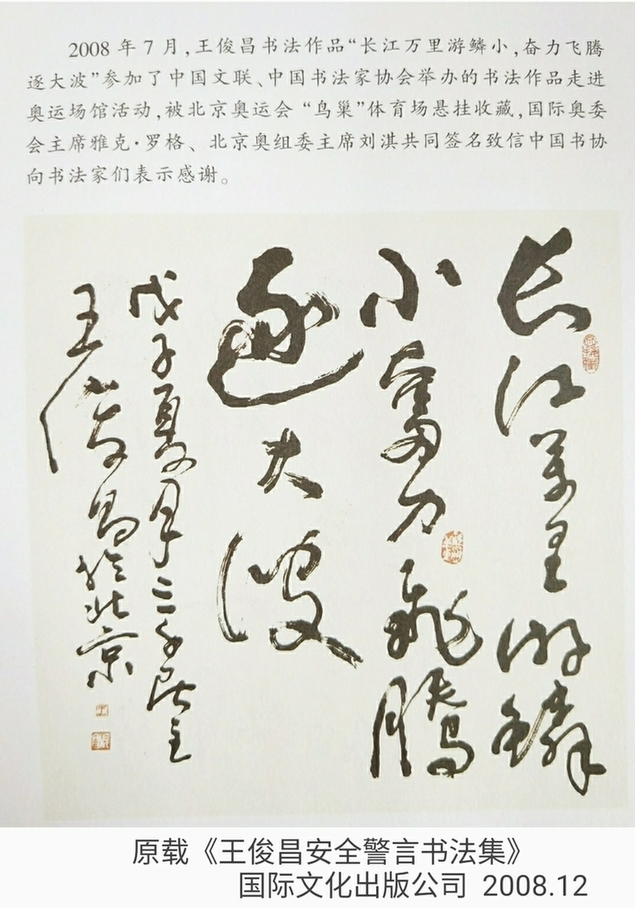 2008年7月,王俊昌书法作品“长江万里游鳞小,奋力飞腾
逐大波”参加了中国文联、中国书法家协会举办的书法作品走进
奥运场馆活动,被北京奥运会“鸟巢”体育场悬挂收藏,国际奥委
会主席雅克·罗格、北京奥组委主席刘淇共同签名致信中国书协
向书法家们表示感谢。
长江万里游鳞
小奮力飛騰
逐大波
戊子夏月三千居主
王俊昌於北京
原载《王俊昌安全警言书法集》
国际文化出版公司 2008.12